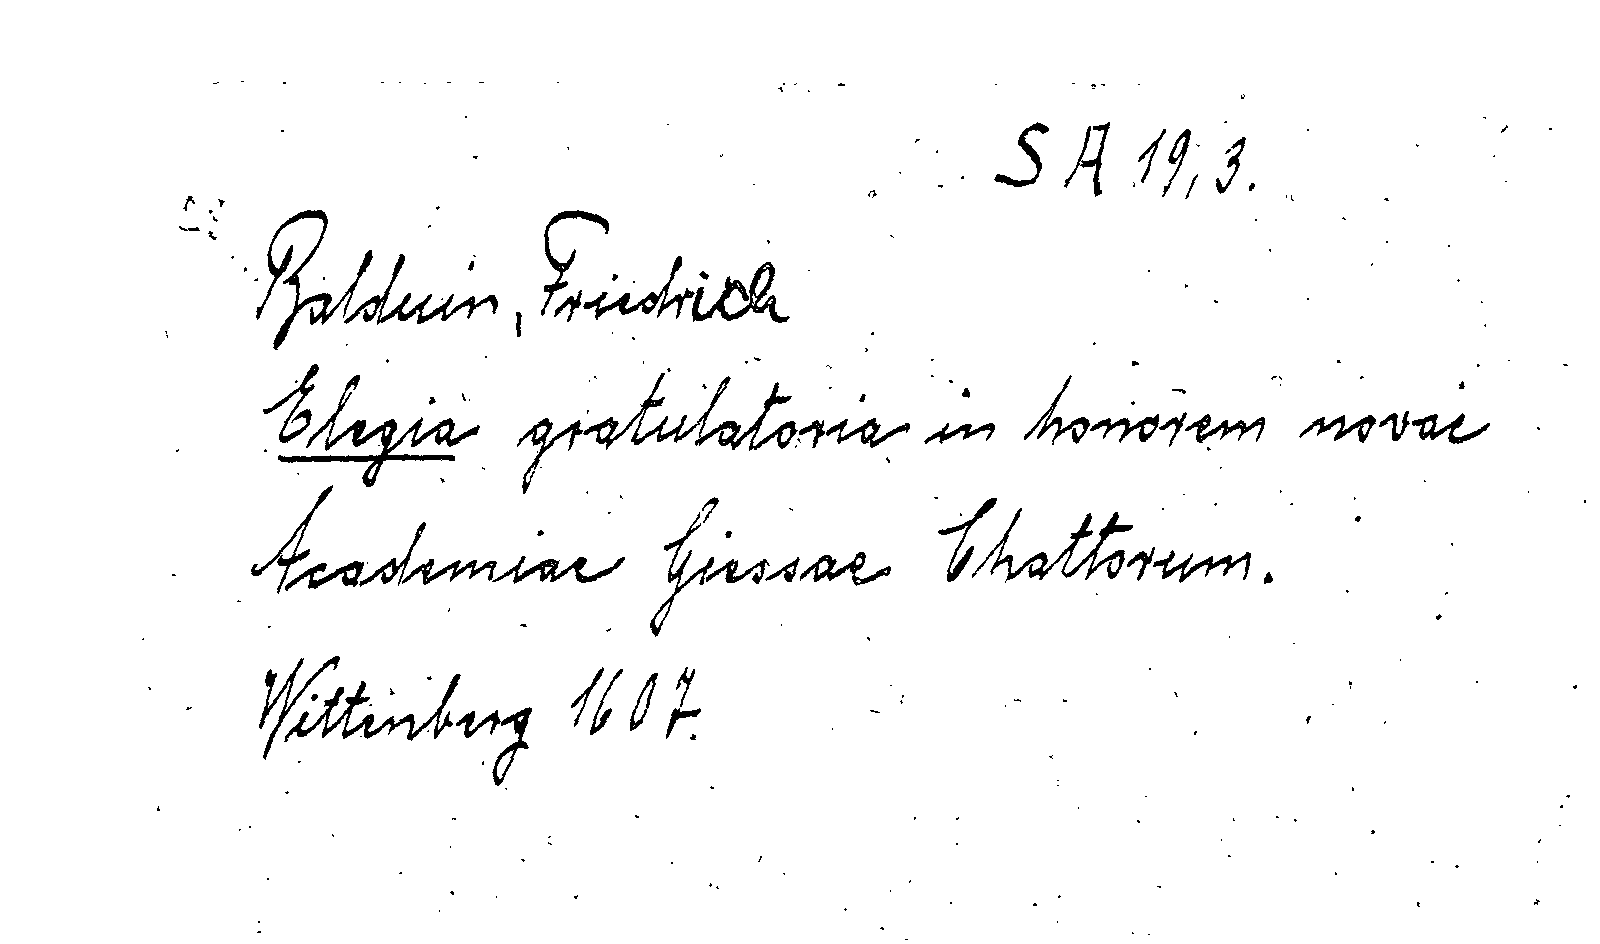 S A 19, 3.
Balduin, Friedrich
Elegia gratulatoria in honorem novae
Academiae Giessae Chattorum.
Wittenberg 1607.